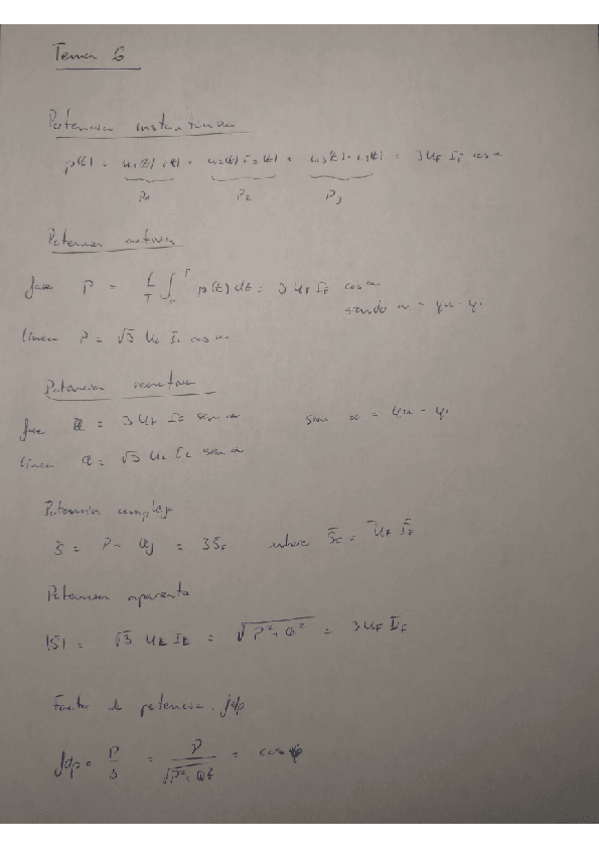 Tema 6
Potencia instantánea
p(t) = u₁(t) i₁(t) + u₂(t) i₂(t) + u₃(t) · i₃(t) = 3 U_F I_F cos α
P₁ P₂ P₃
Potencia activa
fase P = 1/T ∫₀ᵀ p(t) dt = 3 U_F I_F cos α
siendo α = φu - φi
línea P = √3 U_L I_L cos α
Potencia reactiva
fase Q = 3 U_F I_F sen α α = φu - φi
línea Q = √3 U_L I_L sen α
Potencia compleja
S = P - Qj = 3 S_F S̄_F = Ū_F Ī_F
Potencia aparente
|S| = √3 U_L I_L = √(P² + Q²) = 3 U_F I_F
Factor de potencia, fdp
fdp = P/S = P/√(P² + Q²) = cos φ